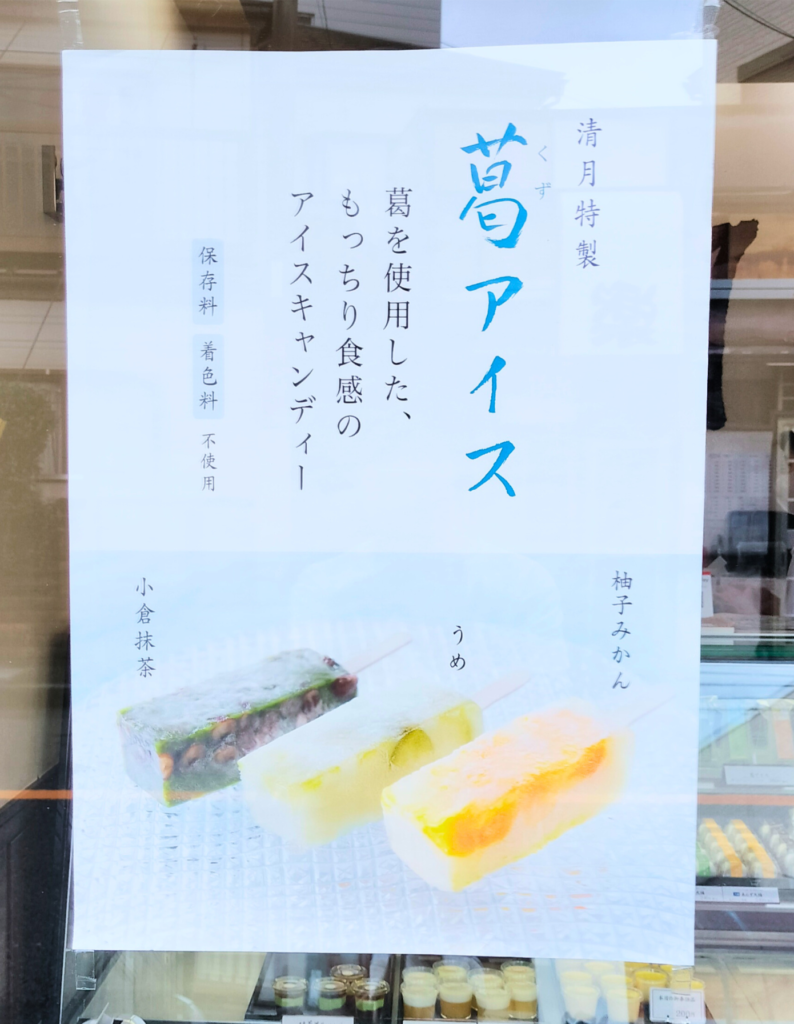 清月特製
くず
葛アイス
葛を使用した、
もっちり食感の
アイスキャンディー
保存料 着色料 不使用
柚子みかん
うめ
小倉抹茶